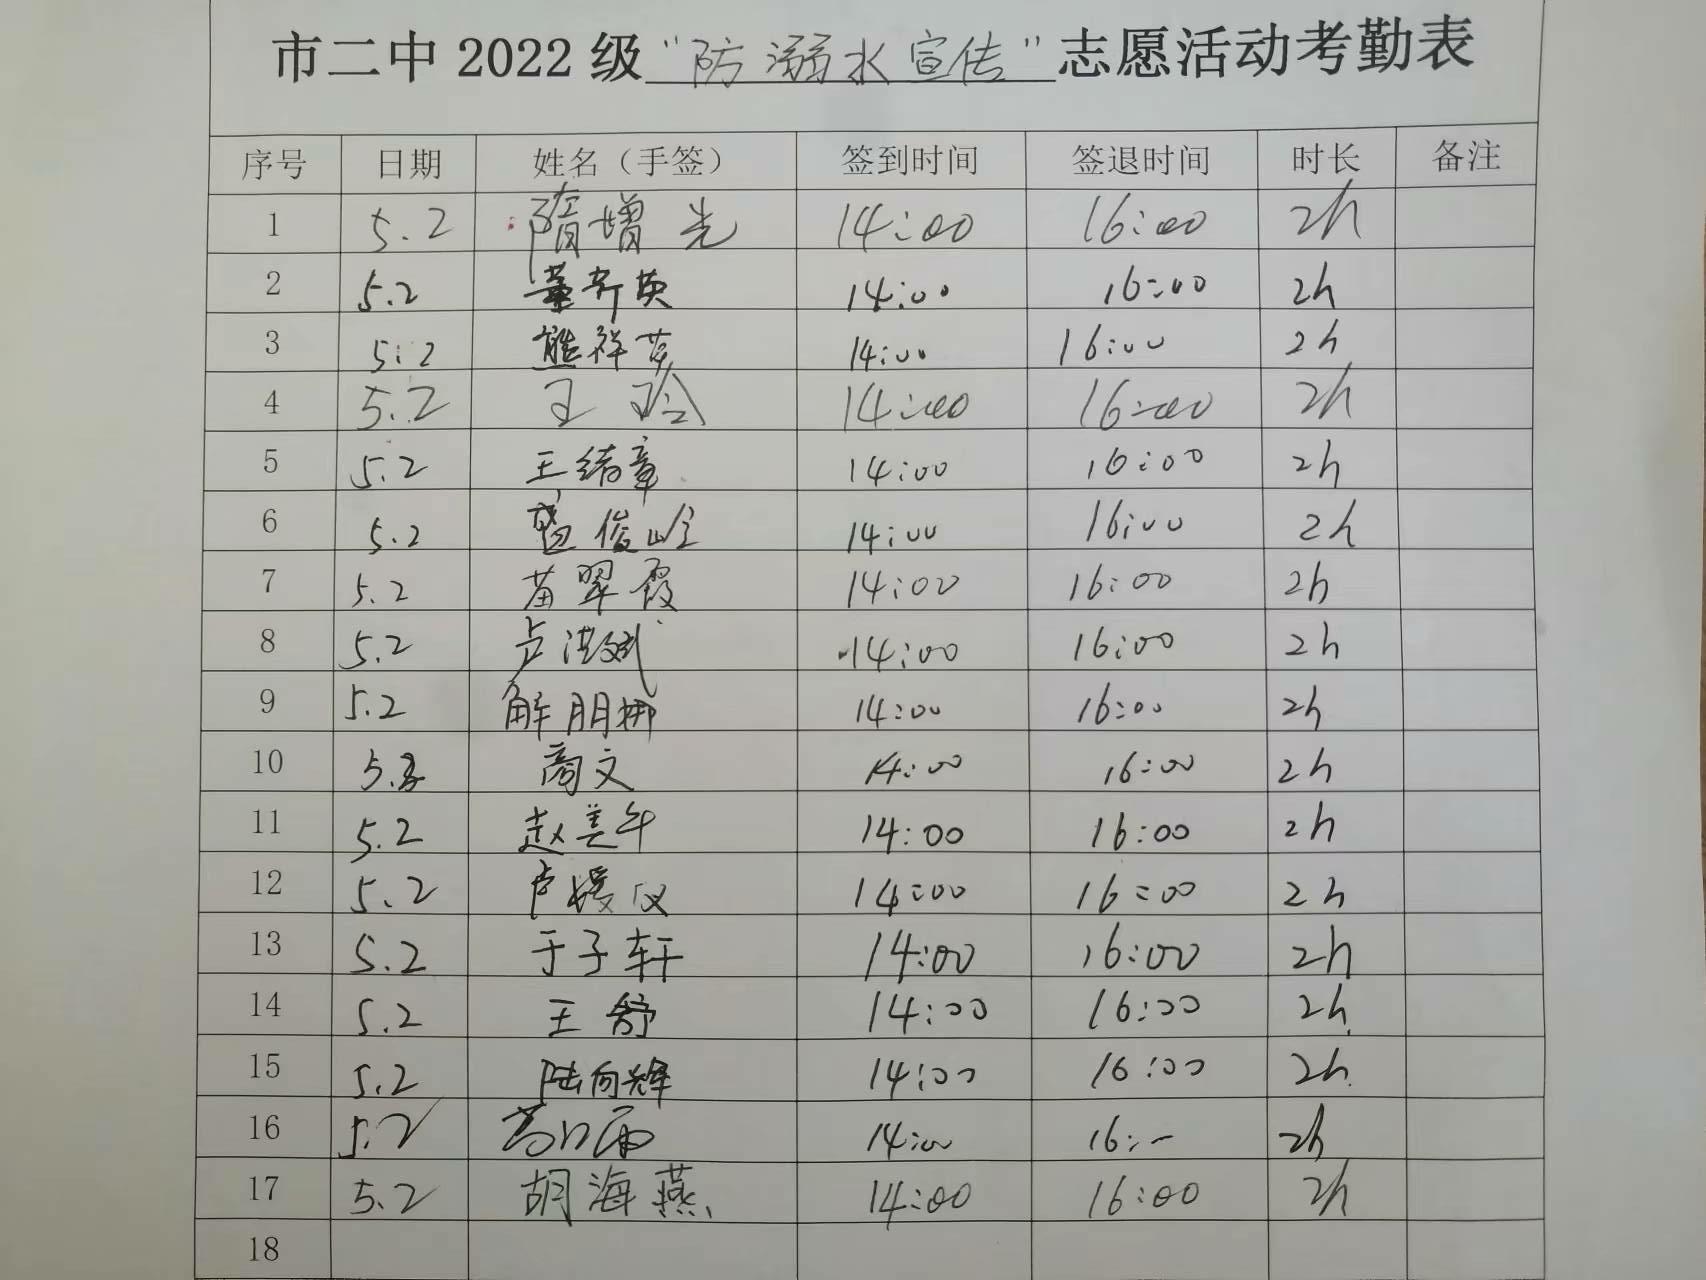 市二中 2022 级 “防溺水宣传” 志愿活动考勤表
序号 日期 姓名（手签） 签到时间 签退时间 时长 备注
1 5.2 隋增光 14:00 16:00 2h
2 5.2 董奇英 14:00 16:00 2h
3 5.2 熊祥 14:00 16:00 2h
4 5.2 王玲 14:00 16:00 2h
5 5.2 王绪章 14:00 16:00 2h
6 5.2 盛俊岭 14:00 16:00 2h
7 5.2 苗翠霞 14:00 16:00 2h
8 5.2 卢洪斌 14:00 16:00 2h
9 5.2 解朋 14:00 16:00 2h
10 5.2 商文 14:00 16:00 2h
11 5.2 赵美午 14:00 16:00 2h
12 5.2 卢媛仪 14:00 16:00 2h
13 5.2 于子轩 14:00 16:00 2h
14 5.2 王舒 14:00 16:00 2h
15 5.2 陆向辉 14:00 16:00 2h
16 5.2 14:00 16:- 2h
17 5.2 胡海燕 14:00 16:00 2h
18